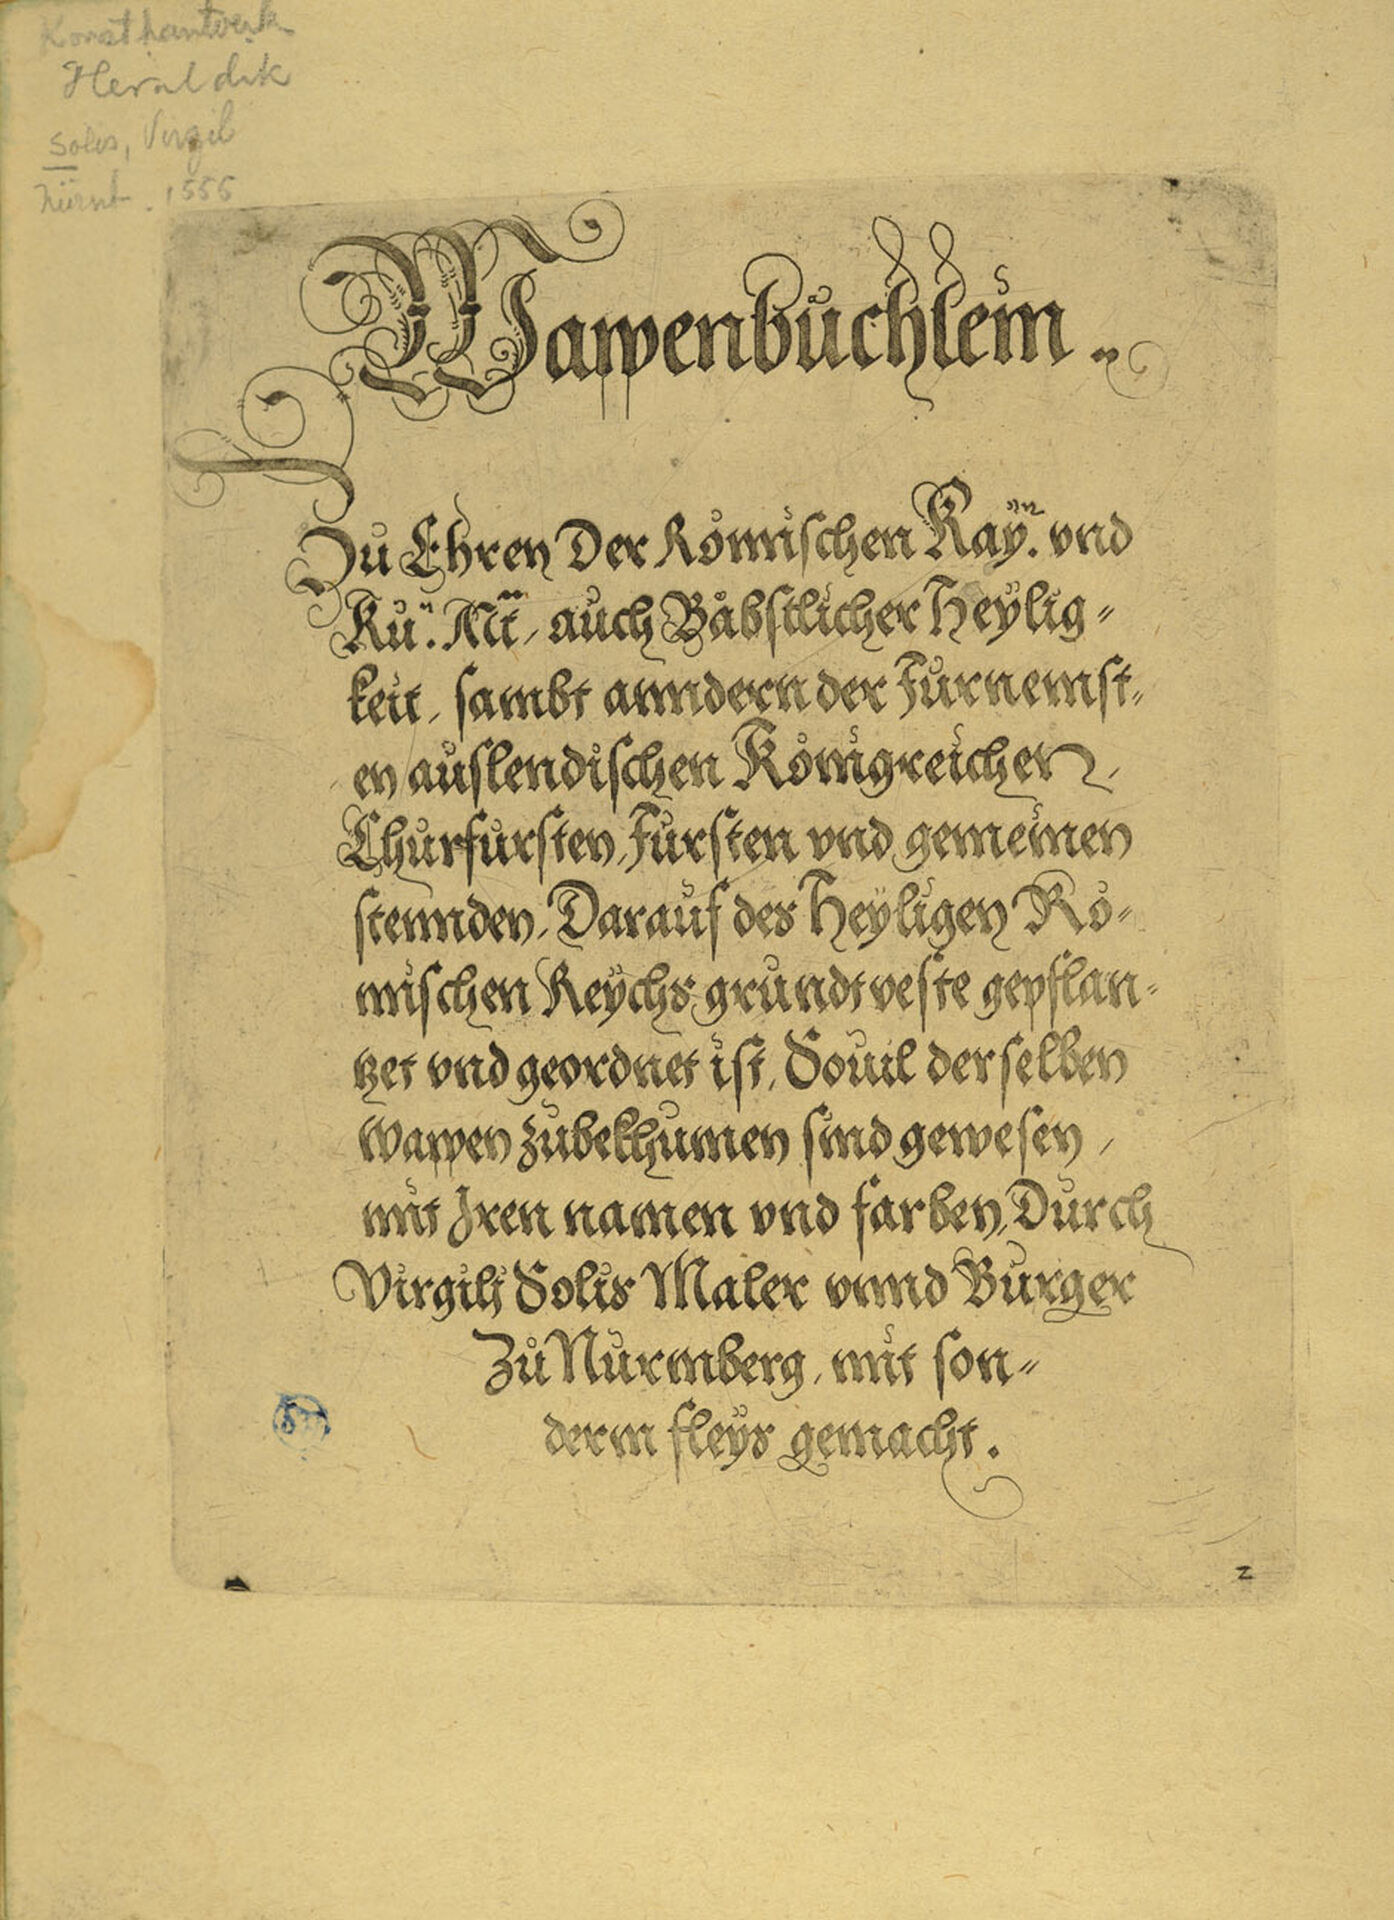 Konsthantverk
Heraldik
Solis, Virgil
Nürnb. 1555
Wapenbüchlein.
Zu Ehren Der Römischen Kaÿ. vnd
Kü. Mt, auch Bäbstlicher Heÿlig=
keit, sambt anndern der Fürnemst=
en auslendischen Königreichen,
Churfürsten, Fürsten vnd gemeinen
stennden, Darauf des Heÿligen Rö=
mischen Reÿchs grundtveste gepflan=
tzet vnd geordnet ist, Souil derselben
wapen zübekhumen sind gewesen,
mit Iren namen vnd farben, Durch
Virgilj Solis Maler vnnd Burger
Zu Nürmberg, mit son=
derm fleÿs gemacht.
2